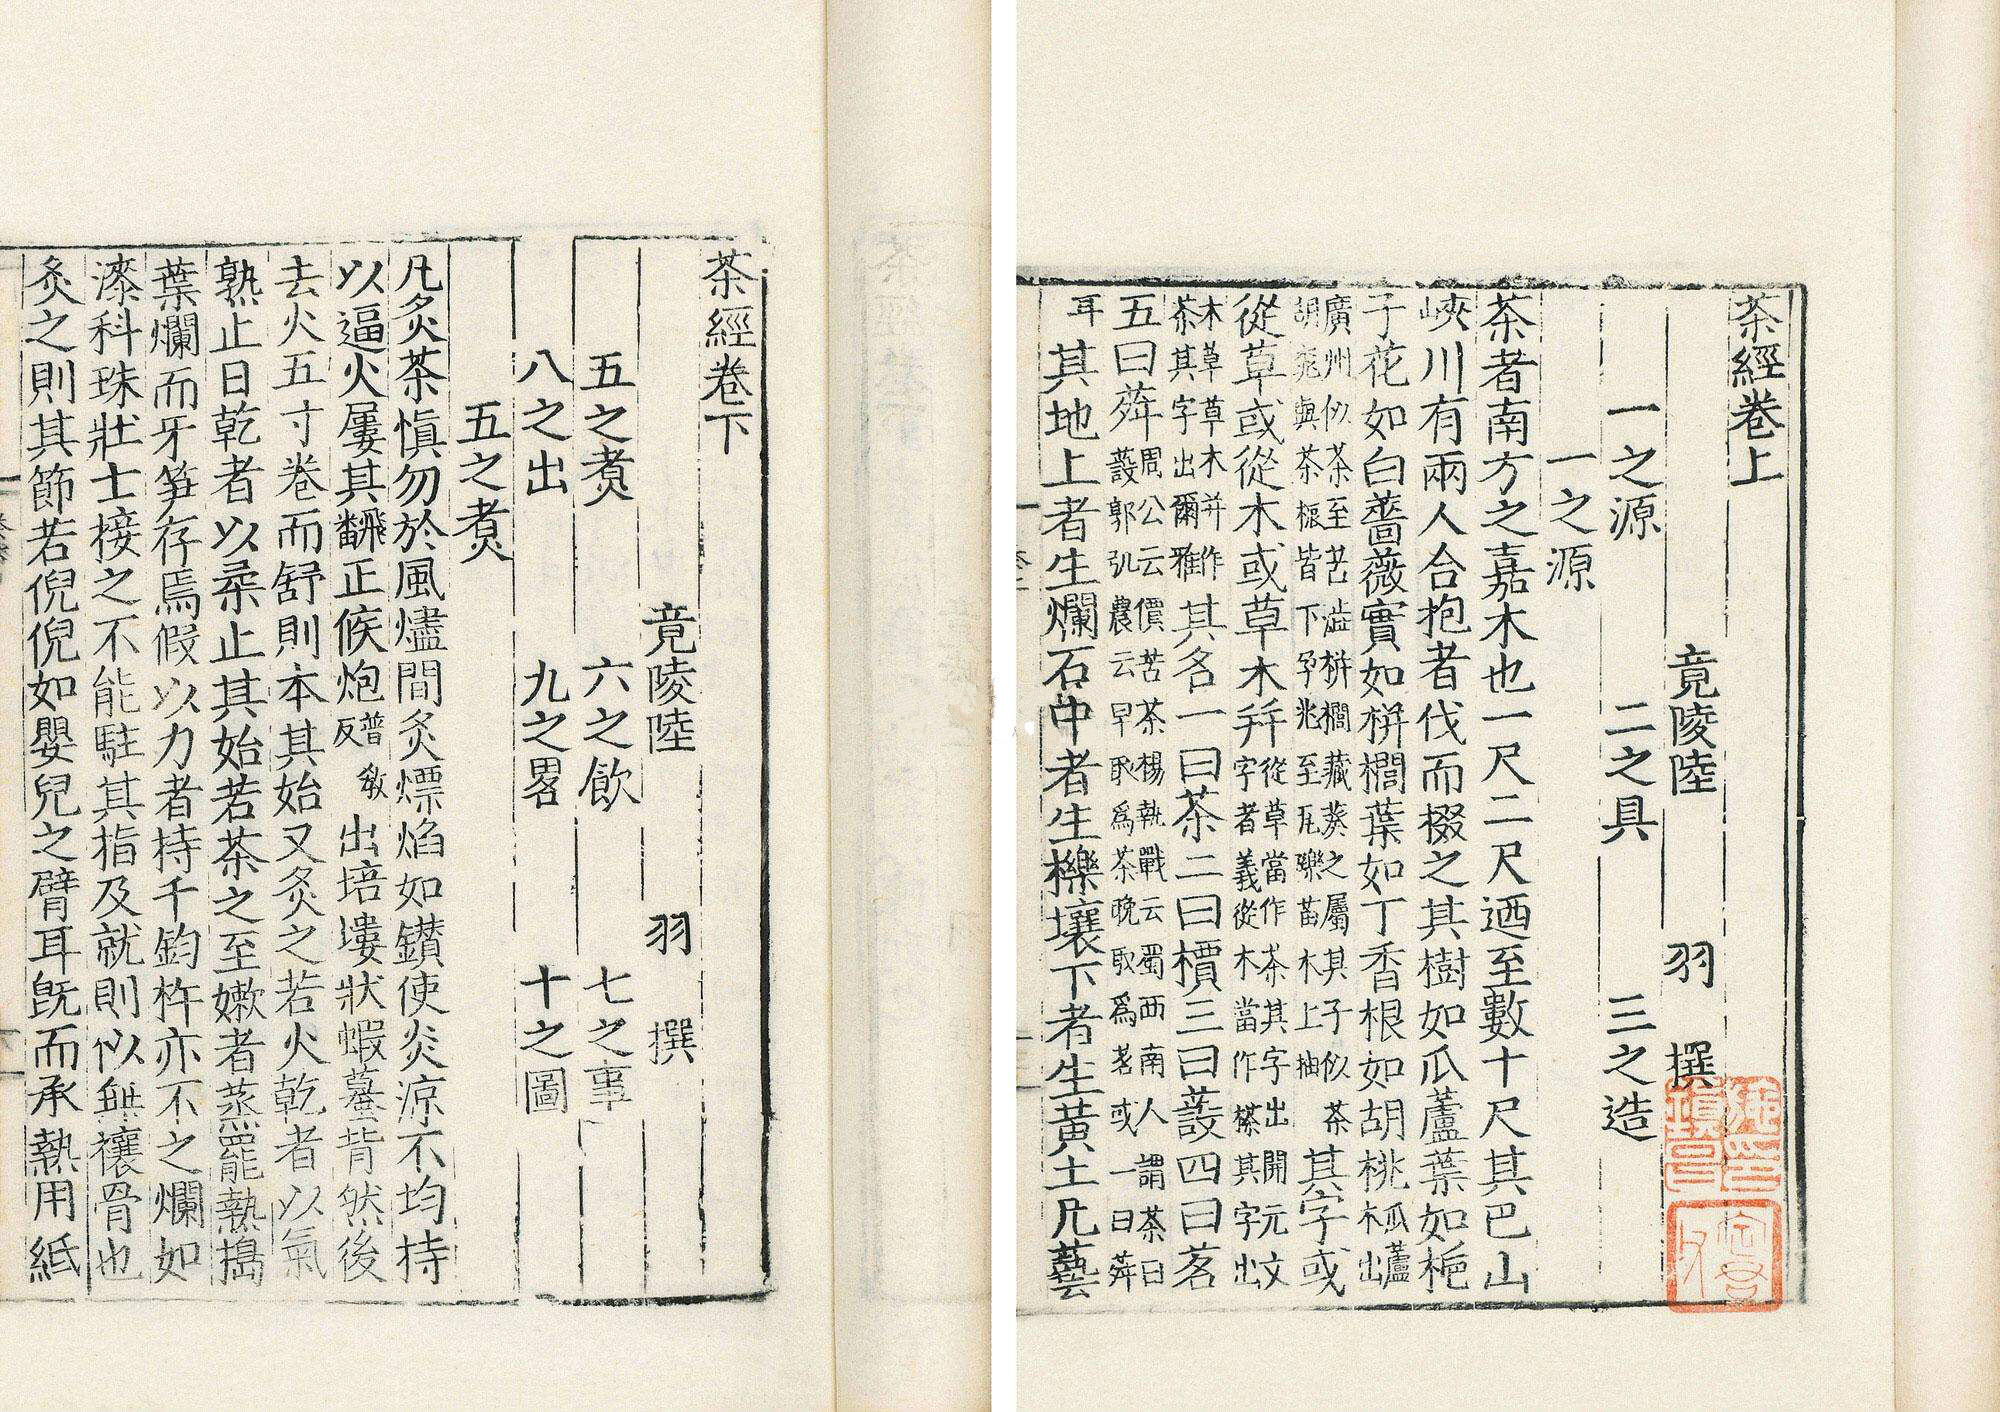 茶經卷上
竟陵陸 羽 撰
一之源 二之具 三之造
一之源
茶者南方之嘉木也一尺二尺迺至數十尺其巴山
峽川有兩人合抱者伐而掇之其樹如瓜蘆葉如梔
子花如白薔薇實如栟櫚葉如丁香根如胡桃瓜蘆出
廣州似茶至苦澁栟櫚藏葵之屬其子似茶
胡桃與茶根皆下孕兆至瓦礫苗木上抽
其字或
從草或從木或草木并
從草當作茶其字出開元文
字者義從木當作㯆其字出
本草草木并作
茶其字出爾雅
其名一曰茶二曰檟三曰蔎四曰茗
五曰荈
周公云價苦茶楊執戰云蜀西南人謂茶曰
蔎郭弘農云早取爲茶晚取爲茗或一曰荈
耳 其地上者生爛石中者生櫟壤下者生黃土凡藝
茶經卷下
竟陵陸 羽 撰
五之煑 六之飲 七之事
八之出 九之畧 十之圖
五之煑
凡炙茶愼勿於風燼間炙熛焰如鑽使炎凉不均持
以逼火屢其飜正候炮普敎反出培塿狀蝦蟇背然後
去火五寸卷而舒則本其始又炙之若火乾者以氣
熟止日乾者以柔止其始若茶之至嫩者蒸罷熱搗
葉爛而牙笋存焉假以力者持千鈞杵亦不之爛如
漆科珠壯士接之不能駐其指及就則似無禳骨也
炙之則其節若倪倪如嬰兒之臂耳旣而承熱用紙